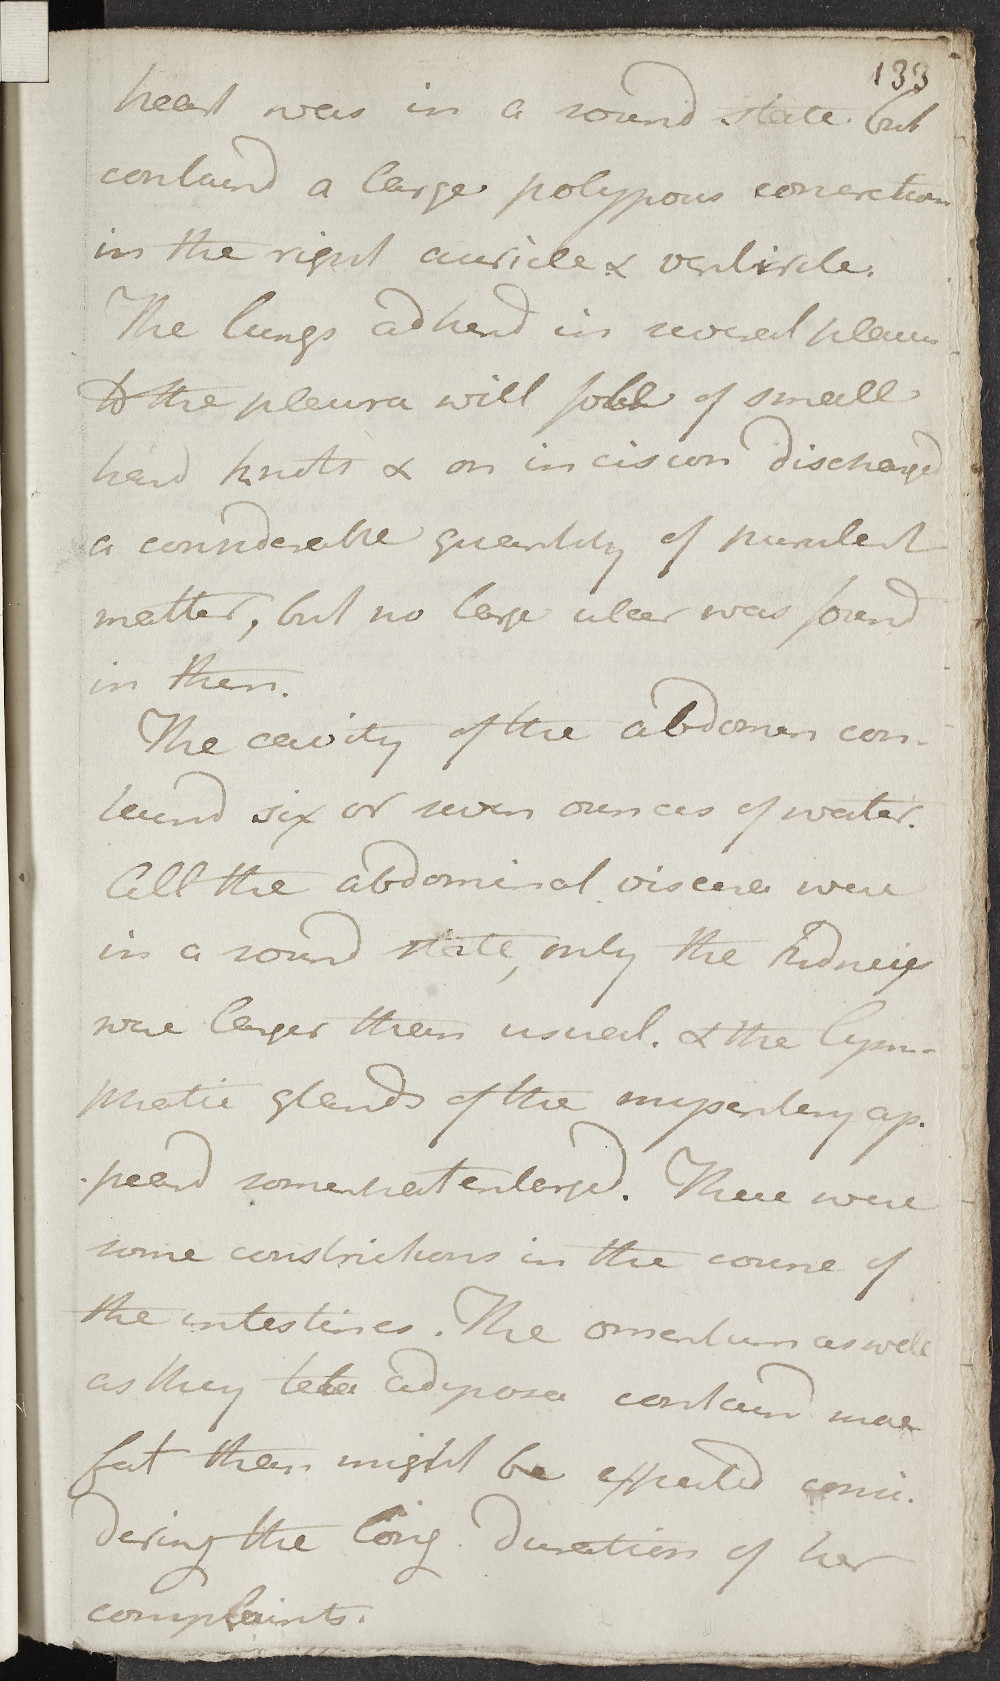 133
heart was in a sound state but
containd a large polypous concretion
in the right auricle & ventricle.
The lungs adherd in several places
to the pleura will full of small
hard knots & on incision discharged
a considerable quantity of purulent
matter, but no large ulcer was found
in them.
The cavity of the abdomen con-
taind six or seven ounces of water.
All the abdominal viscera were
in a sound state, only the kidneys
were larger than usual. & the lym-
phatic glands of the mesentery ap-
-peard somewhat enlarged. There were
some constrictions in the course of
the intestines. The omentum as well
as they tela adiposa containd more
fat than might be expected consi-
dering the long duration of her
complaints.